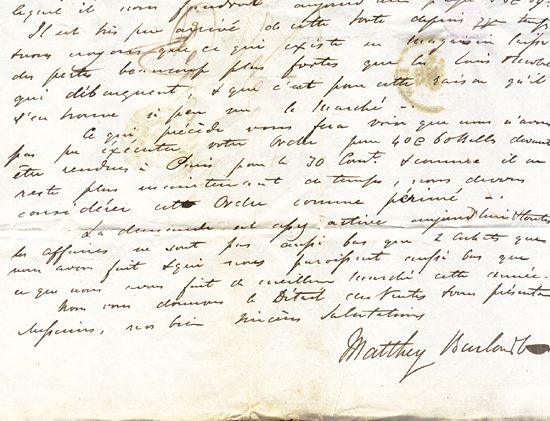 lequel il nous faudrait aujourd'hui payer
Il est très peu arrivé de cette sorte depuis qq temps
& nous croyons que ce qui existe en magasin
des pertes beaucoup plus fortes que les
qui débarquent, & que c'est pour cette raison qu'il
s'en trouve si peu sur le marché -.
Ce qui précède vous fera voir que nous n'avons
pas pu exécuter votre ordre pour 400 balles devant
être rendues à Paris pour le 30 Cour.t & comme il ne
reste plus maintenant de temps, nous devons
considérer cet ordre comme périmé -.
La demande est assez active aujourd'hui & toutes
les affaires ne sont pas aussi bas que 2 achats que
nous avons fait & qui nous paroissent aussi bas que
ce que nous avons fait de meilleur marché cette année.
Nous vous donnons le Détail & vous présentons
Messieurs, nos bien sincères salutations
Matthey